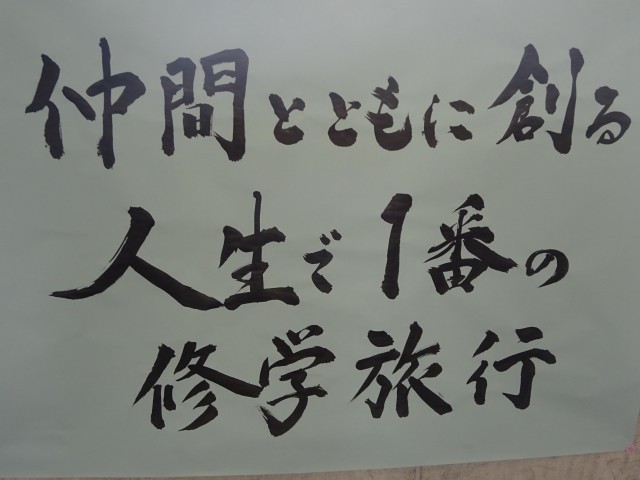 仲間とともに創る
人生で1番の
修学旅行